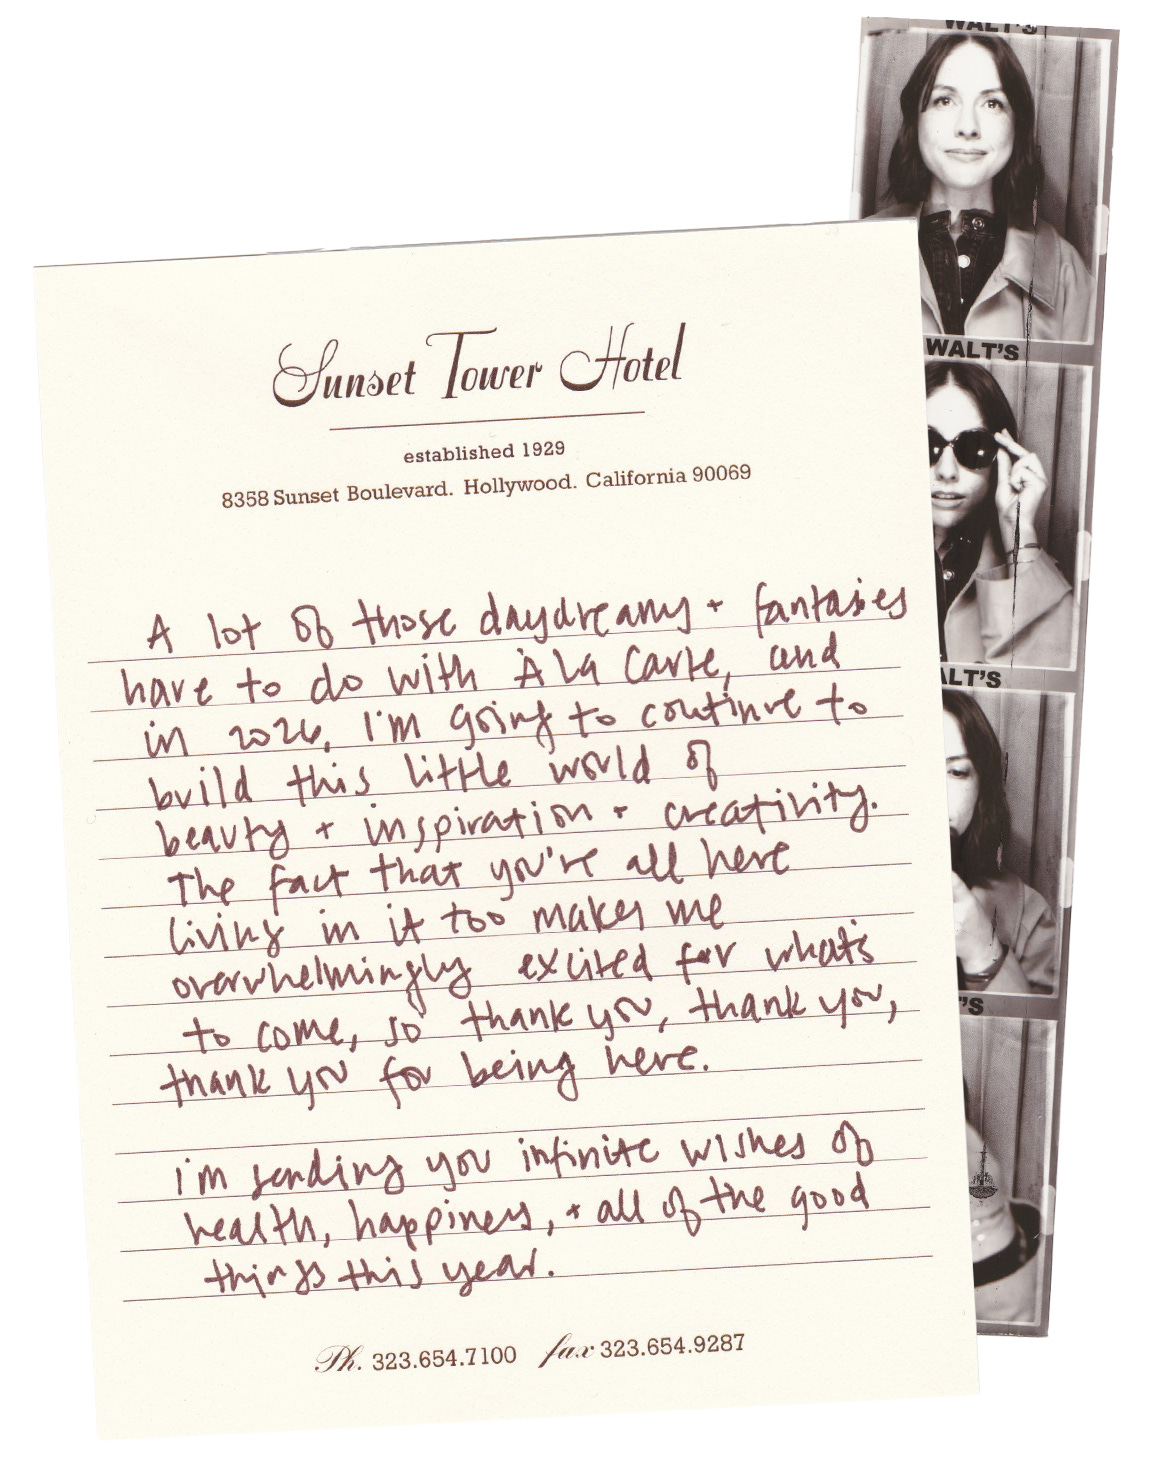 WALT'S
Sunset Tower Hotel
established 1929
8358 Sunset Boulevard. Hollywood. California 90069
A lot of those daydreams + fantasies
have to do with À La Carte, and
in 2026, I'm going to continue to
build this little world of
beauty + inspiration + creativity.
The fact that you're all here
living in it too makes me
overwhelmingly excited for what's
to come, so thank you, thank you,
thank you for being here.
i'm sending you infinite wishes of
health, happiness, + all of the good
things this year.
Ph. 323.654.7100 fax 323.654.9287
WALT'S
ALT'S
'S